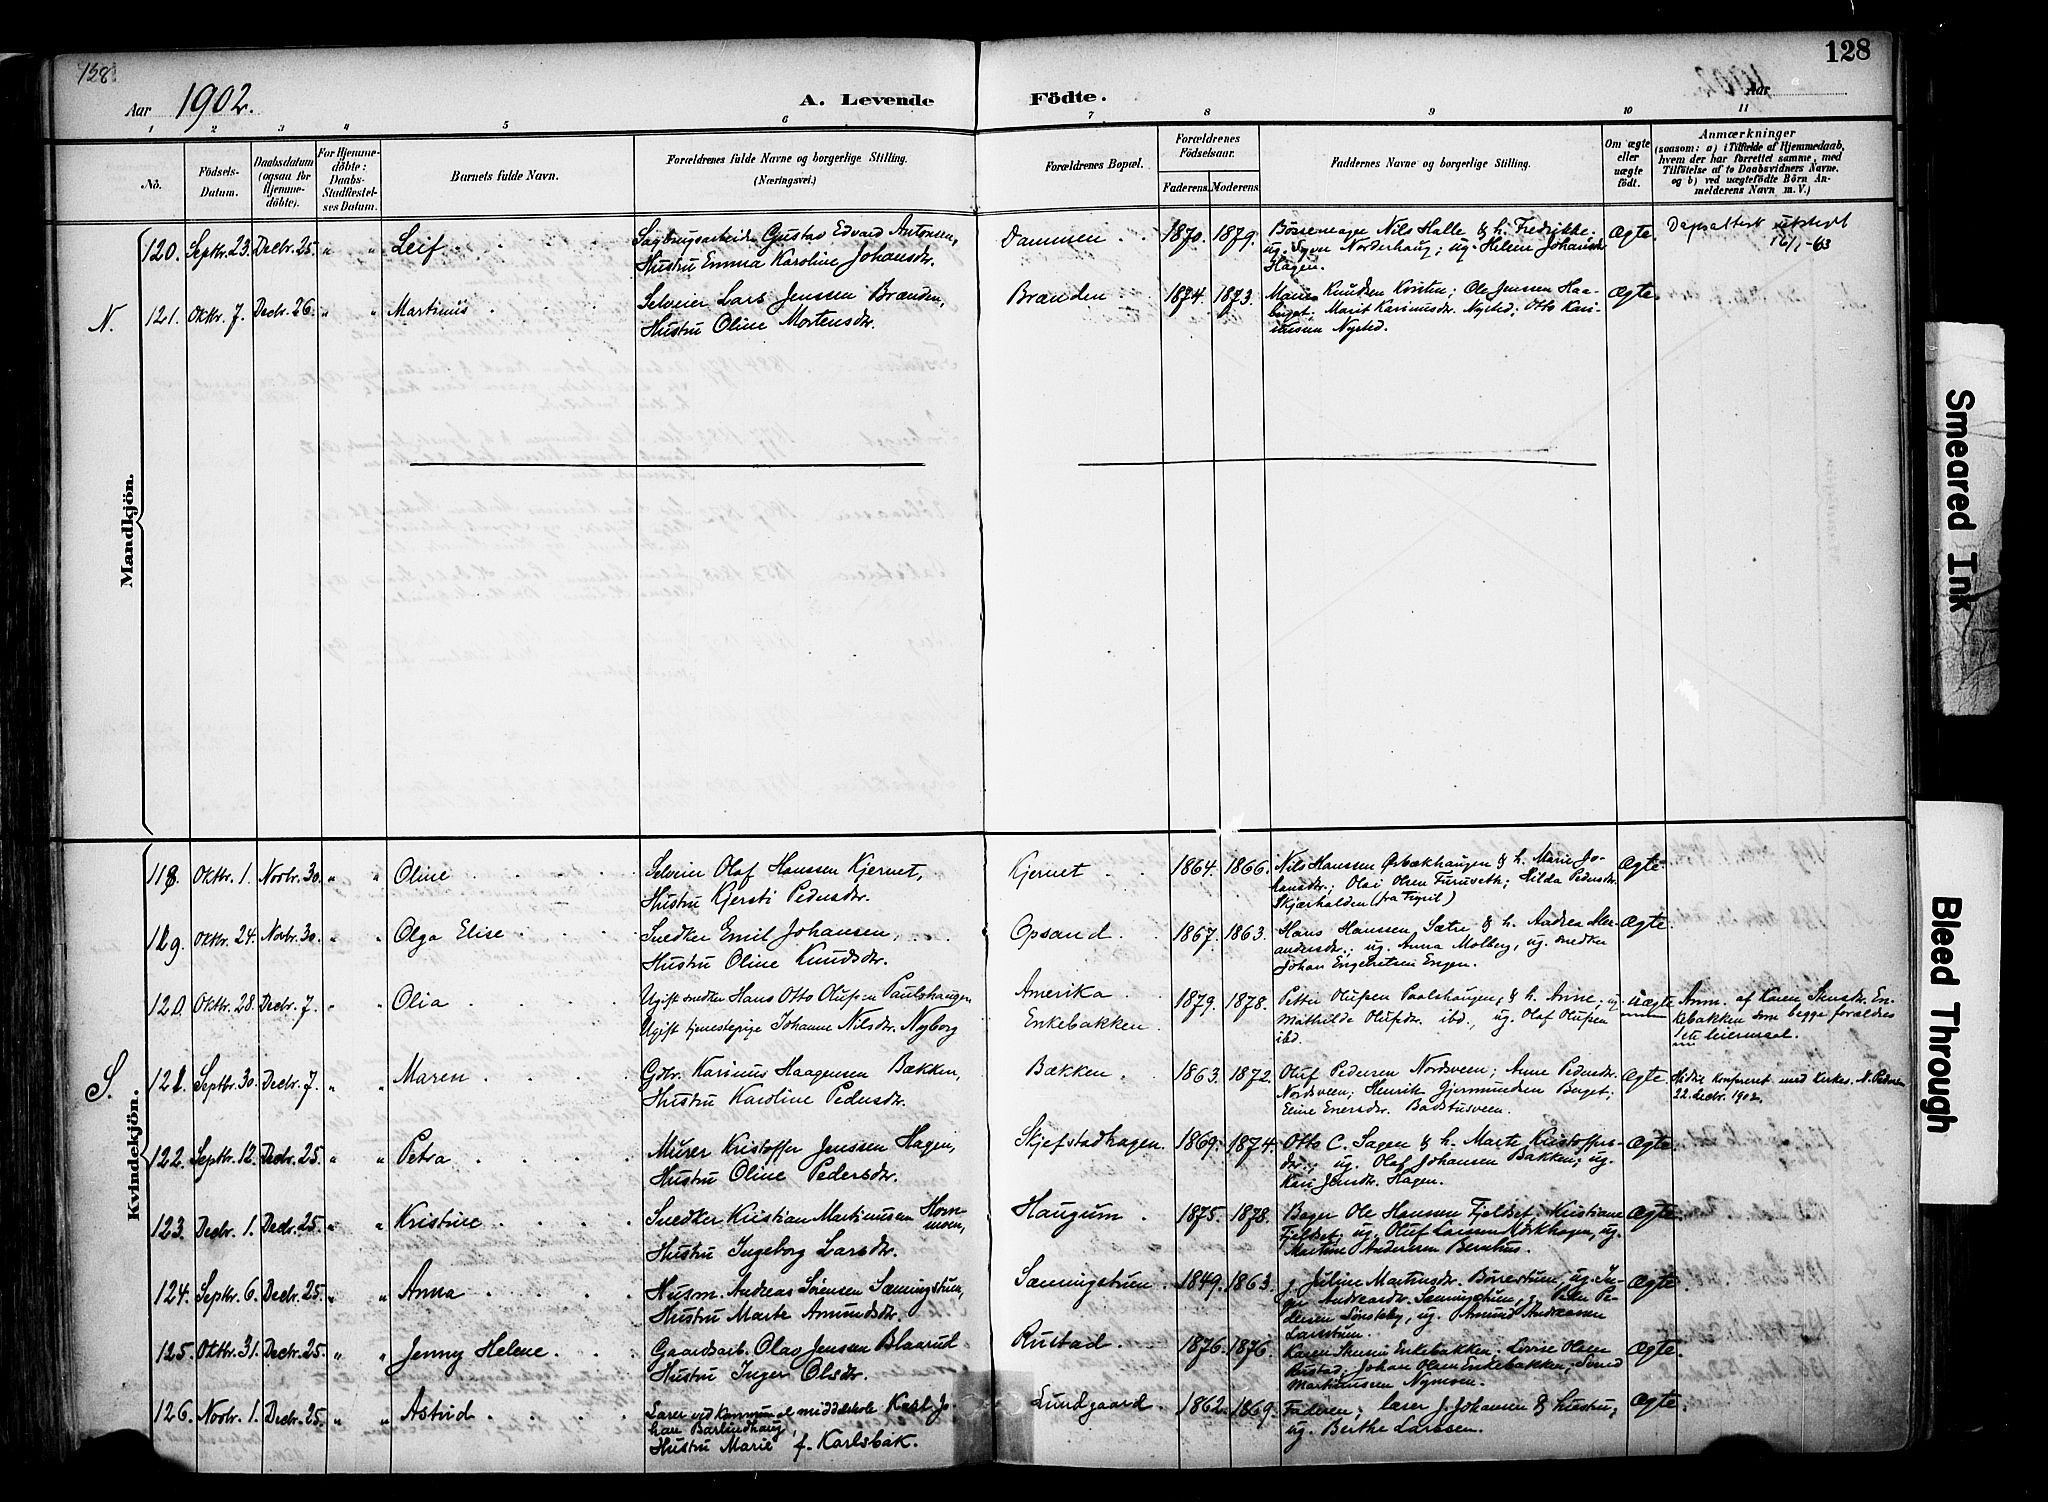 128
128
Aar 1902.
A. Levende Födte.
Aar
1 2 3 4 5 6 7 8 9 10 11
No.
Födsels-Datum.
Daabsdatum (ogsaa for Hjemmedöbte).
For Hjemmedöbte: Daabs-Stadfestelses Datum.
Barnets fulde Navn.
Forældrenes fulde Navne og borgerlige Stilling. (Næringsvei.)
Forældrenes Bopæl.
Forældrenes Födselsaar.
Faderens. Moderens.
Faddernes Navne og borgerlige Stilling.
Om ægte eller uægte födt.
Anmærkninger
(saasom: a) i Tilfælde af Hjemmedaab, hvem der har forrettet samme, med Tilföielse af to Daabsvidners Navne, og b) ved uægtefödte Börn Anmelderens Navn m. V.)
Mandkjön.
120. Septbr. 23. Decbr. 25. " " Leif
Sagbrugsarbeider Gustav Edvard Antonsen,
Hustru Emma Karoline Johansdr.
Dammen 1870. 1879.
Bössemager Nils Halle & h. Fredrikke;
ug. Signe Norderhaug; ug. Helene Johansdr.
Hagen.
Ægte. Daabsattest utstedt
16/1-63
N. 121. Oktbr. 7. Decbr. 26. " " Martinus
Selveier Lars Jenssen Brænden,
Hustru Oline Mortensdr.
Brænden 1874. 1873.
Knudsen Ole Jenssen Haa-
berget; Marit Karinusdr. Nysted; Otto Kari-
nussen Nysted.
Ægte.
Kvindekjön.
118. Oktbr. 1. Novbr. 30. " " Oline
Selveier Olaf Hanssen Kjernet,
Hustru Kjersti Pedersdr.
Kjernet 1864. 1866.
Nils Hanssen Ørbækhaugen & h. Marie Jo-
hansdr.; Olai Olsen Furuseth; Hilda Pedersdr.
Skjærholden (fra Trysil)
Ægte
119. Oktbr. 24. Novbr. 30. " " Olga Elise
Snedker Emil Johansen,
Hustru Oline Knudsdr.
Opsand 1867. 1863.
Hans Hanssen Sætre & h. Andrea Alex-
andersdr.; ug. Anna Molberg, ug. snedker
Johan Engebretsen Engen.
Ægte.
120. Oktbr. 28. Decbr. 7. " " Olia
Ugift snedker Hans Otto Olufsen Paulshaugen
Ugift tjenestepige Johanne Nilsdr. Nyborg
Amerika
Enkebakken 1879. 1878.
Petter Olufsen Paalshaugen, & h. Anne; ug.
Mathilde Olufsdr. ibd., ug. Olaf Olufsen
ibd.
Uægte Anm. af Karen Skensdr. En-
kebakken som begge foreldres
1ste leiermaal.
S. 121. Septbr. 30. Decbr. 7. " " Maren
Gdbr. Karinus Haagensen Bækken,
Hustru Karoline Pedersdr.
Bækken 1863. 1872.
Oluf Pedersen Nordsveen; Anne Pedersdr.
Nordsveen; Henrik Gjermundsen Berget;
Eline Enersdr. Badstusveen.
Ægte Hidtil konfereret med kirkes. N. Pedersen
22. decbr. 1902.
122. Septbr. 12. Decbr. 25. " " Petra
Murer Kristoffer Jenssen Hagen,
Hustru Oline Pedersdr.
Skjefstadhagen. 1869. 1874.
Otto C. Sagen & h. Marte Kristoffers-
dr., ug. Olaf Johansen Bakken; ug.
Kari Jensdr. Hagen.
Ægte.
123. Decbr. 1. Decbr. 25. " " Kristine
Snedker Kristian Martinusen Hom-
moen,
Hustru Ingeborg Larsdr.
Haugum 1875. 1878.
Bager Ole Hansen Fjeldset, Kristiane
Fjeldset, ug. Oluf Larssen Mörkhagen, ug.
Martine Andersen Bernhus.
Ægte.
124. Septbr. 6. Decbr. 25. " " Anna
Husm. Andreas Sörensen Sæningstuen,
Hustru Marte Amundsdr.
Sæningstuen 1849. 1863.
g. Juline Martinsdr. Börrestuen, ug. In-
ger Andreasdr. Sæningstuen, g. Peder Pe-
dersen Sönsteby, ug. Amund Andreassen
Larsstuen.
Ægte.
125. Oktbr. 31. Decbr. 25. " " Jenny Helene
Gaardsarb. Olav Jensen Blaarud
Hustru Inger Olsdr.
Rustad 1876. 1876.
Karen Skensdr Enkebakken, Lovise Olsen
Rustad, Johan Olsen Enkebakken,
Martinussen Nymoen.
Ægte.
126. Novbr. 1. Decbr. 25. " " Astrid
Lærer ved Kommunal middelskole Karl Jo-
han Barlindhaug,
Hustru Marie f. Karlsbak.
Lundgaard 1862. 1869.
Faderen; lærer J. Johansen & hustru,
ug. Berthe Larssen.
Ægte.
Smeared Ink
Bleed Through